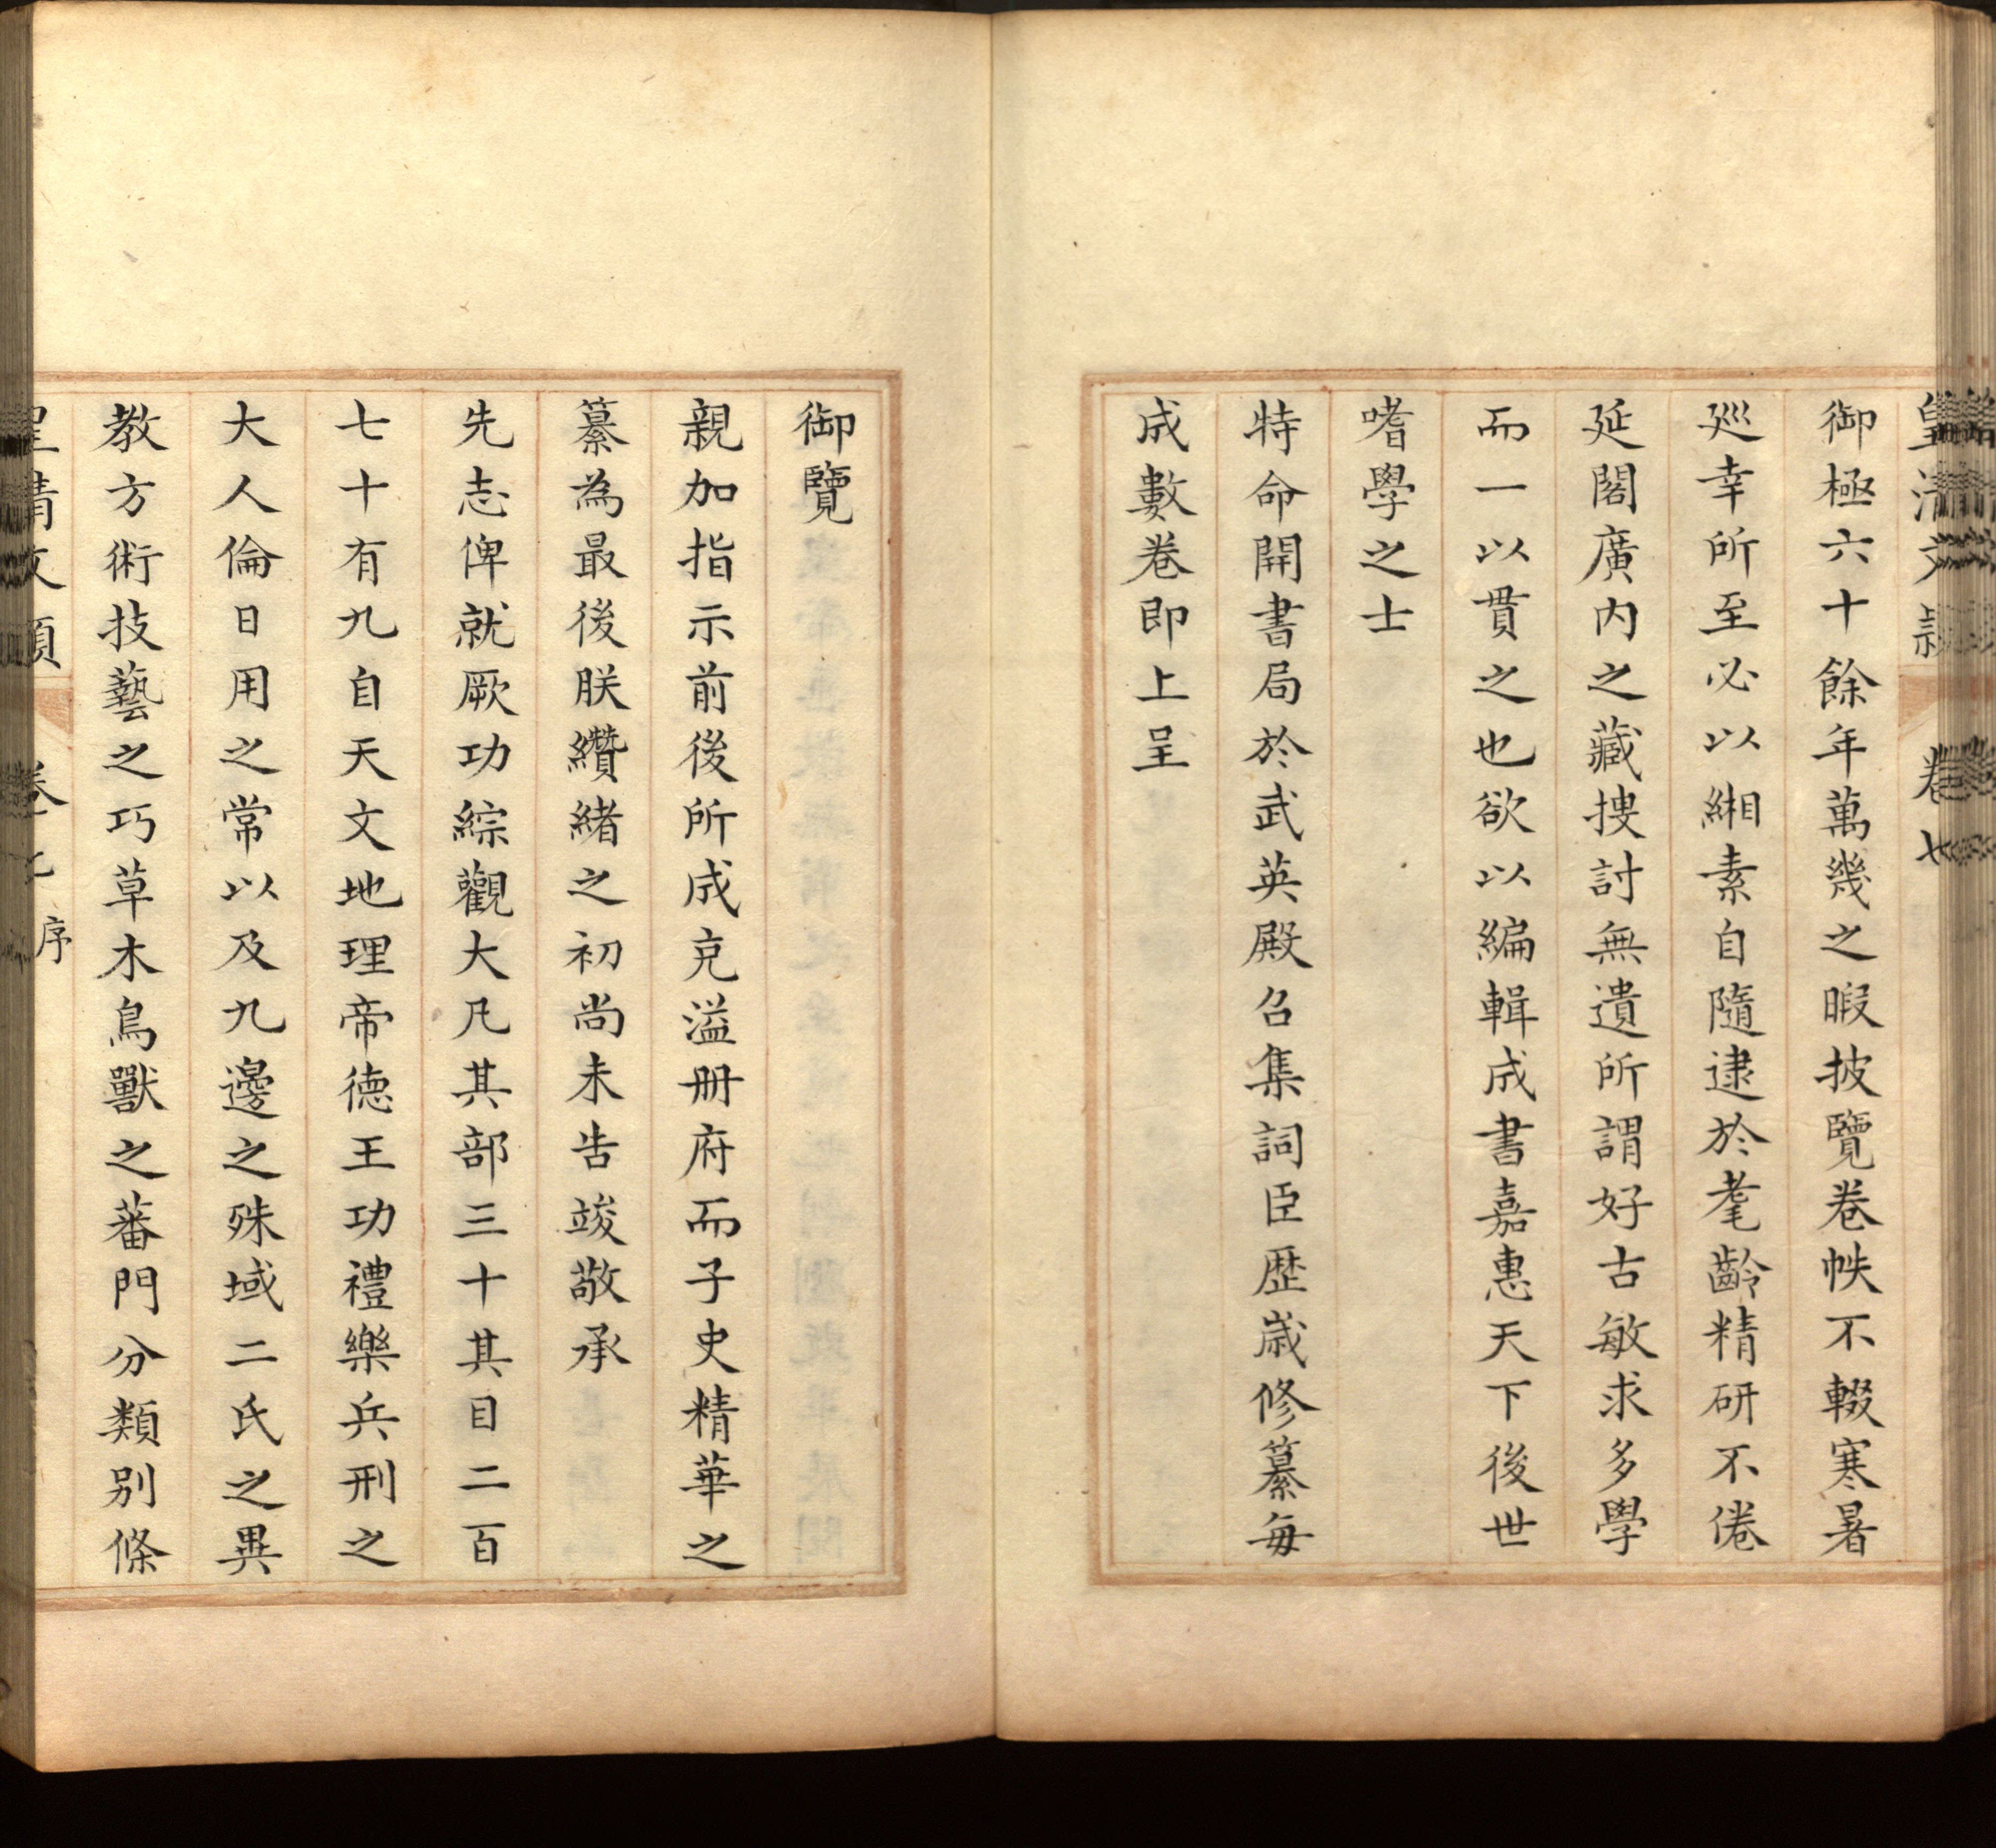 皇清文穎 卷七
御極六十餘年萬幾之暇披覽卷帙不輟寒暑
廵幸所至必以緗素自隨逮於耄齡精研不倦
延閣廣内之藏捜討無遺所謂好古敏求多學
而一以貫之也欲以編輯成書嘉惠天下後世
嗜學之士
特命開書局於武英殿召集詞臣歴歳修纂每
成數卷即上呈
御覽
親加指示前後所成充溢册府而子史精華之
纂為最後朕纘緒之初尚未告竣敬承
先志俾就厥功綜觀大凡其部三十其目二百
七十有九自天文地理帝德王功禮樂兵刑之
大人倫日用之常以及九邊之殊域二氏之異
教方術技藝之巧草木鳥獸之蕃門分類别條
皇清文穎 卷七 序